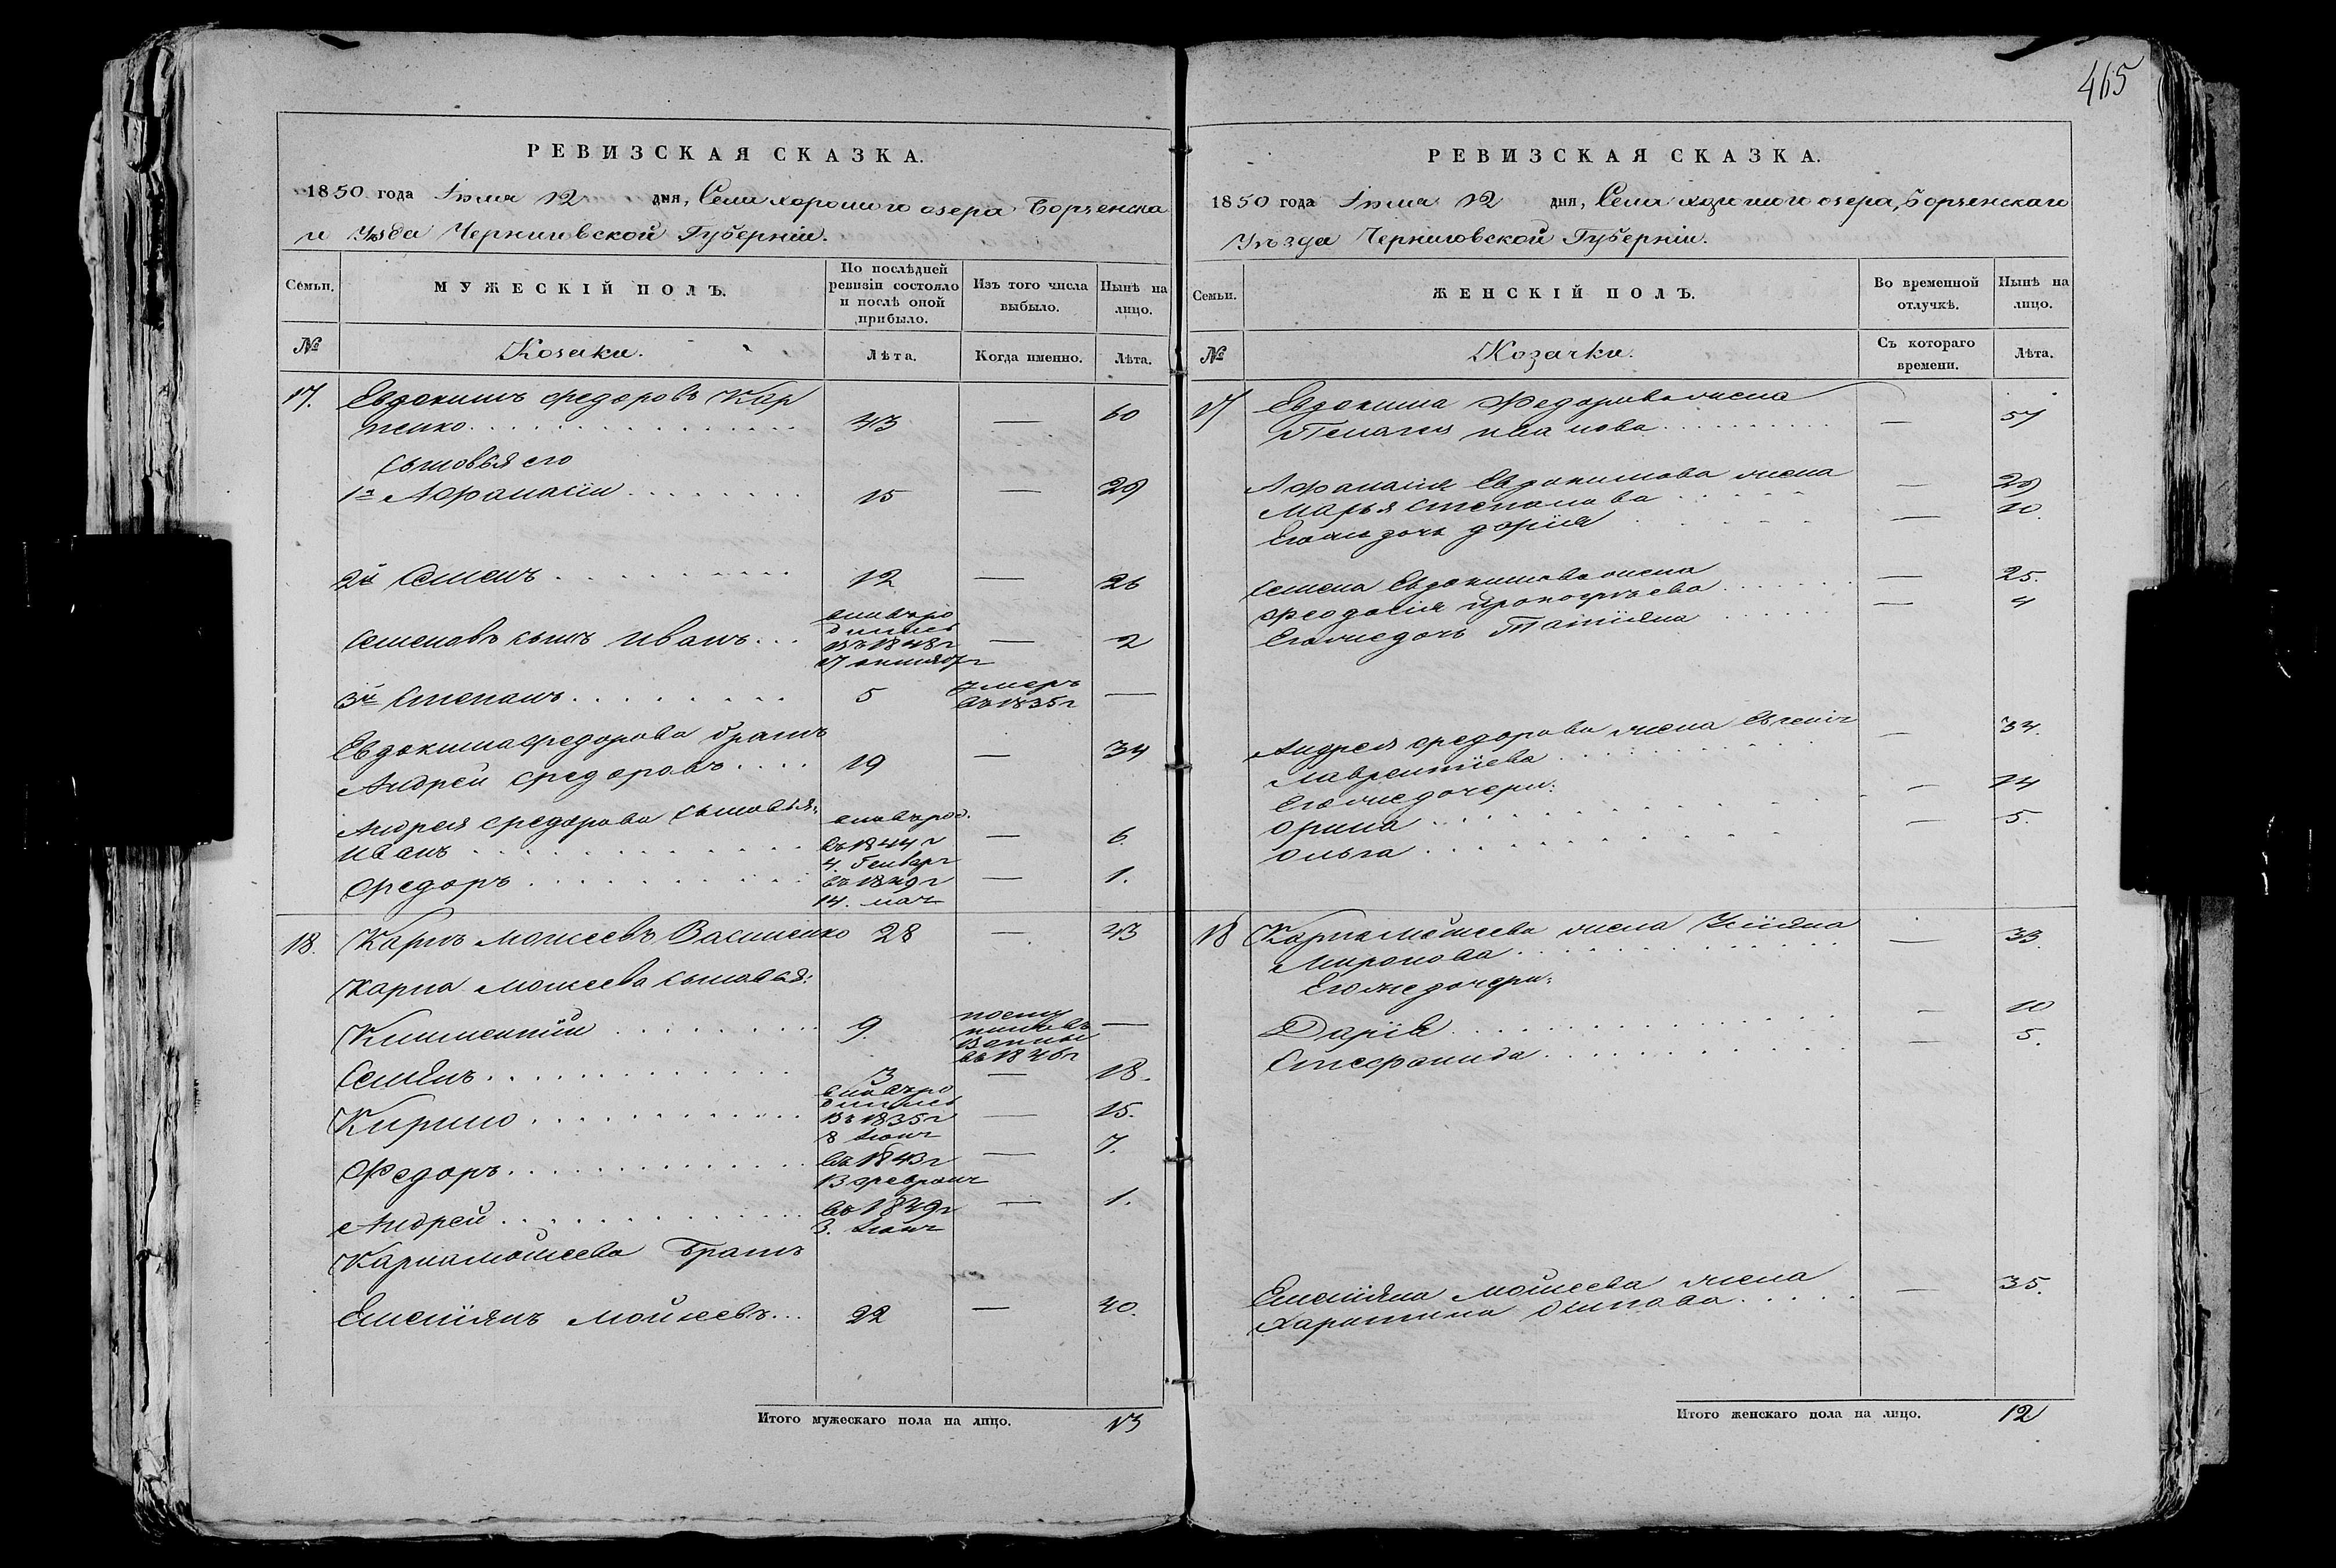 465
РЕВИЗСКАЯ СКАЗКА.
1850 года Іюля 12 дня, Села хорошого озера Борзенска
го Уѣзда Черниговской Губерніи.
Семьи. МУЖЕСКІЙ ПОЛЪ. По послѣдней ревизіи состояло и послѣ оной прибыло. Изъ того числа выбыло. Нынѣ на лицо.
№ Козаки. Лѣта. Когда именно. Лѣта.
17. Евдокимъ Федоровъ Кар
пенко 43 — 60
сыновья его
1й Афанасій 15 — 29
2й Семенъ 12 — 26
Семеновъ сынъ Иванъ вновь ро
дился
въ 1848 г — 2
17 октября
3й Степанъ 5 умеръ —
въ 1835 г
Евдокима Федорова братъ
Андрей Федоровъ 19 — 34
Андрея Федорова сыновья: вновь род.
Иванъ въ 1844 г — 6
4. Генвар
Федоръ въ 1849 г — 1.
14. мая
18. Карпъ Моисеевъ Василенко 28 — 43
Карпа Моисеева сыновья:
Климентій 9. посту —
пилъ въ
въ 1846 г
Семенъ 3 — 18.
Кирило вновь ро
дился
въ 1835 г — 15.
8 Іюня
Федоръ въ 1843 г — 7.
13 февраля
Андрей въ 1849 г — 1.
3. Іюня
Карпа Моисеева братъ
Емелiянъ Мойсеевъ 22 — 40.
Итого мужескаго пола на лицо. 13
РЕВИЗСКАЯ СКАЗКА.
1850 года Іюля 12 дня, Села хорошого озера, Борзенскаго
Уѣзда Черниговской Губерніи.
Семьи. ЖЕНСКІЙ ПОЛЪ. Во временной отлучкѣ. Нынѣ на лицо.
№ Козачки. Съ котораго времени. Лѣта.
17 Евдокима Федорова жена
Пелагея Иванова — 57
Афанасія Евдокимова жена
Марья Степанова — 29
Егожъ дочь Дарія — 10.
Семена Евдокимова жена — 25.
Феодосія Прокофьева
Егоже дочь Татіяна — 4
Андрея Федорова жена Евгенія
Лаврентіева — 34.
Егоже дочери:
Орина — 14
Ольга — 5.
18 Карпа Моисеева жена Уліяна
Миронова — 33.
Егоже дочери:
Дарія — 10
Стефанида — 5.
Емеліяна Мойсеева жена
Харитина Осипова — 35.
Итого женскаго пола на лицо. 12